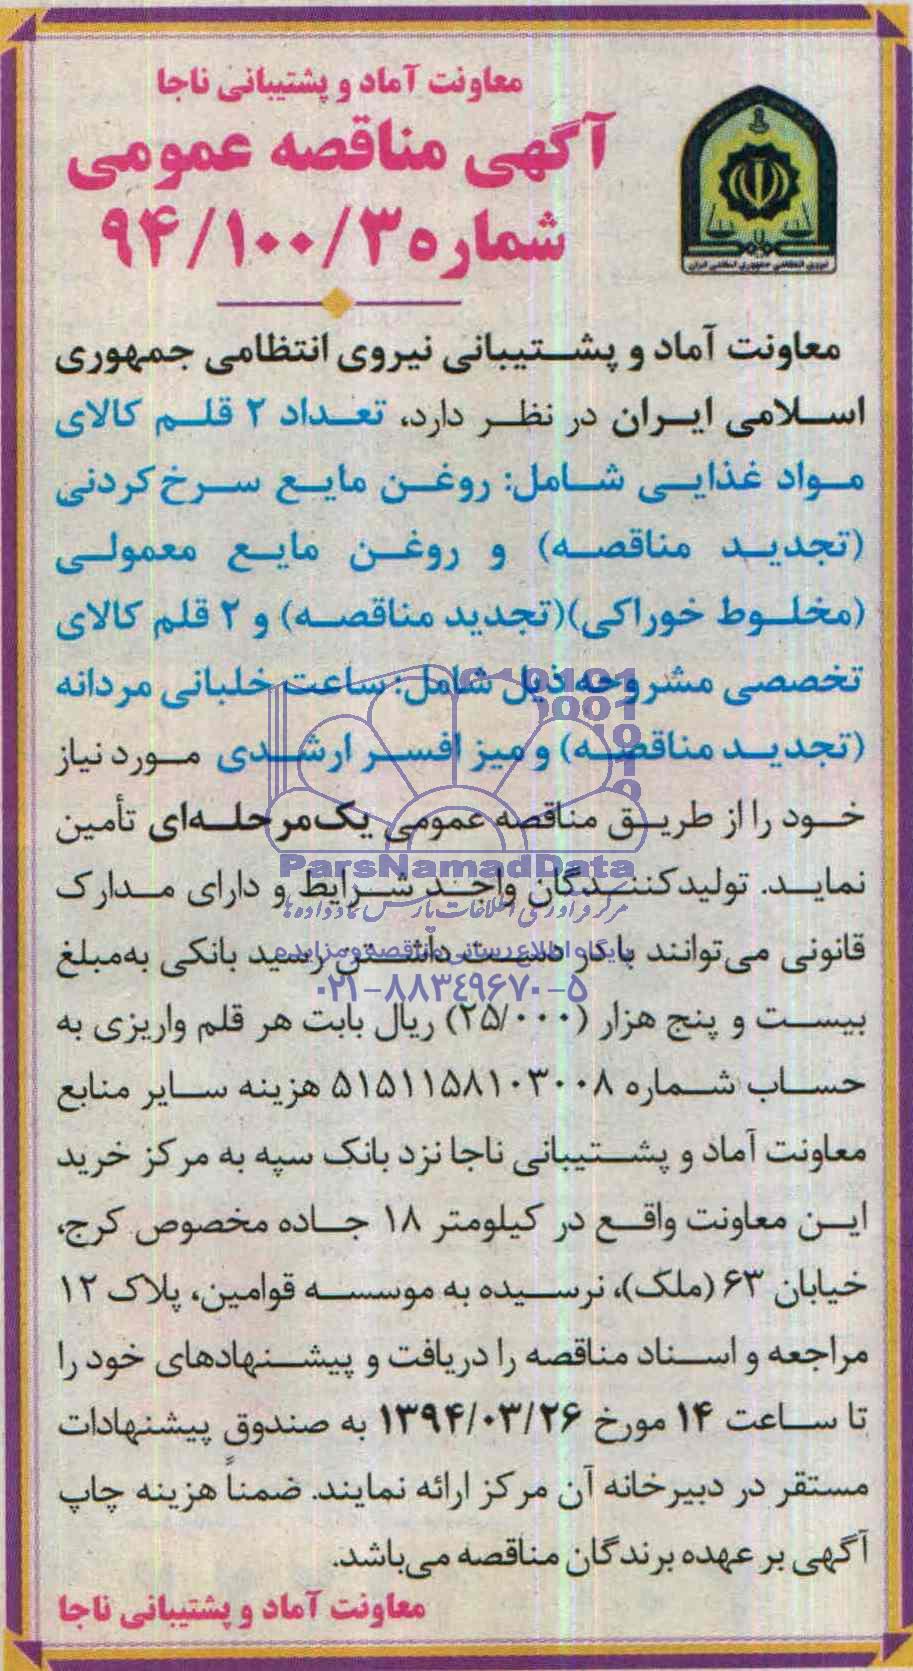 معاونت آماد و پشتیبانی ناجا
آگهی مناقصه عمومی
شماره ۹۴/۱۰۰/۳
نیروی انتظامی جمهوری اسلامی ایران
معاونت آماد و پشتیبانی نیروی انتظامی جمهوری
اسلامی ایران در نظر دارد، تعداد ۲ قلم کالای
مواد غذایی شامل: روغن مایع سرخ کردنی
(تجدید مناقصه) و روغن مایع معمولی
(مخلوط خوراکی)(تجدید مناقصه) و ۲ قلم کالای
تخصصی مشروحه ذیل شامل: ساعت خلبانی مردانه
(تجدید مناقصه) و میز افسر ارشدی مورد نیاز
خود را از طریق مناقصه عمومی یک‌مرحله‌ای تأمین
نماید. تولیدکنندگان واجد شرایط و دارای مدارک
قانونی می‌توانند با در دست داشتن رسید بانکی به‌مبلغ
بیست و پنج هزار (۲۵/۰۰۰) ریال بابت هر قلم واریزی به
حساب شماره ۵۱۵۱۱۵۸۱۰۳۰۰۸ هزینه سایر منابع
معاونت آماد و پشتیبانی ناجا نزد بانک سپه به مرکز خرید
این معاونت واقع در کیلومتر ۱۸ جاده مخصوص کرج،
خیابان ۶۳ (ملک)، نرسیده به موسسه قوامین، پلاک ۱۲
مراجعه و اسناد مناقصه را دریافت و پیشنهادهای خود را
تا ساعت ۱۴ مورخ ۱۳۹۴/۰۳/۲۶ به صندوق پیشنهادات
مستقر در دبیرخانه آن مرکز ارائه نمایند. ضمناً هزینه چاپ
آگهی بر عهده برندگان مناقصه می‌باشد.
معاونت آماد و پشتیبانی ناجا
ParsNamadData
مرکز فرآوری اطلاعات پارس نماد داده‌ها
پایگاه اطلاع رسانی مناقصه و مزایده
۰۲۱-۸۸۳۴۹۶۷۰-۵